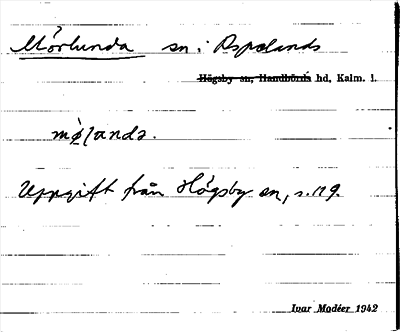 Mörlunda sn i Aspelands
Högsby sn, Handbörds hd, Kalm. l.
mø̀ʃanda.
Uppgift från Högsby sn, s. 119.
Ivar Modéer 1942